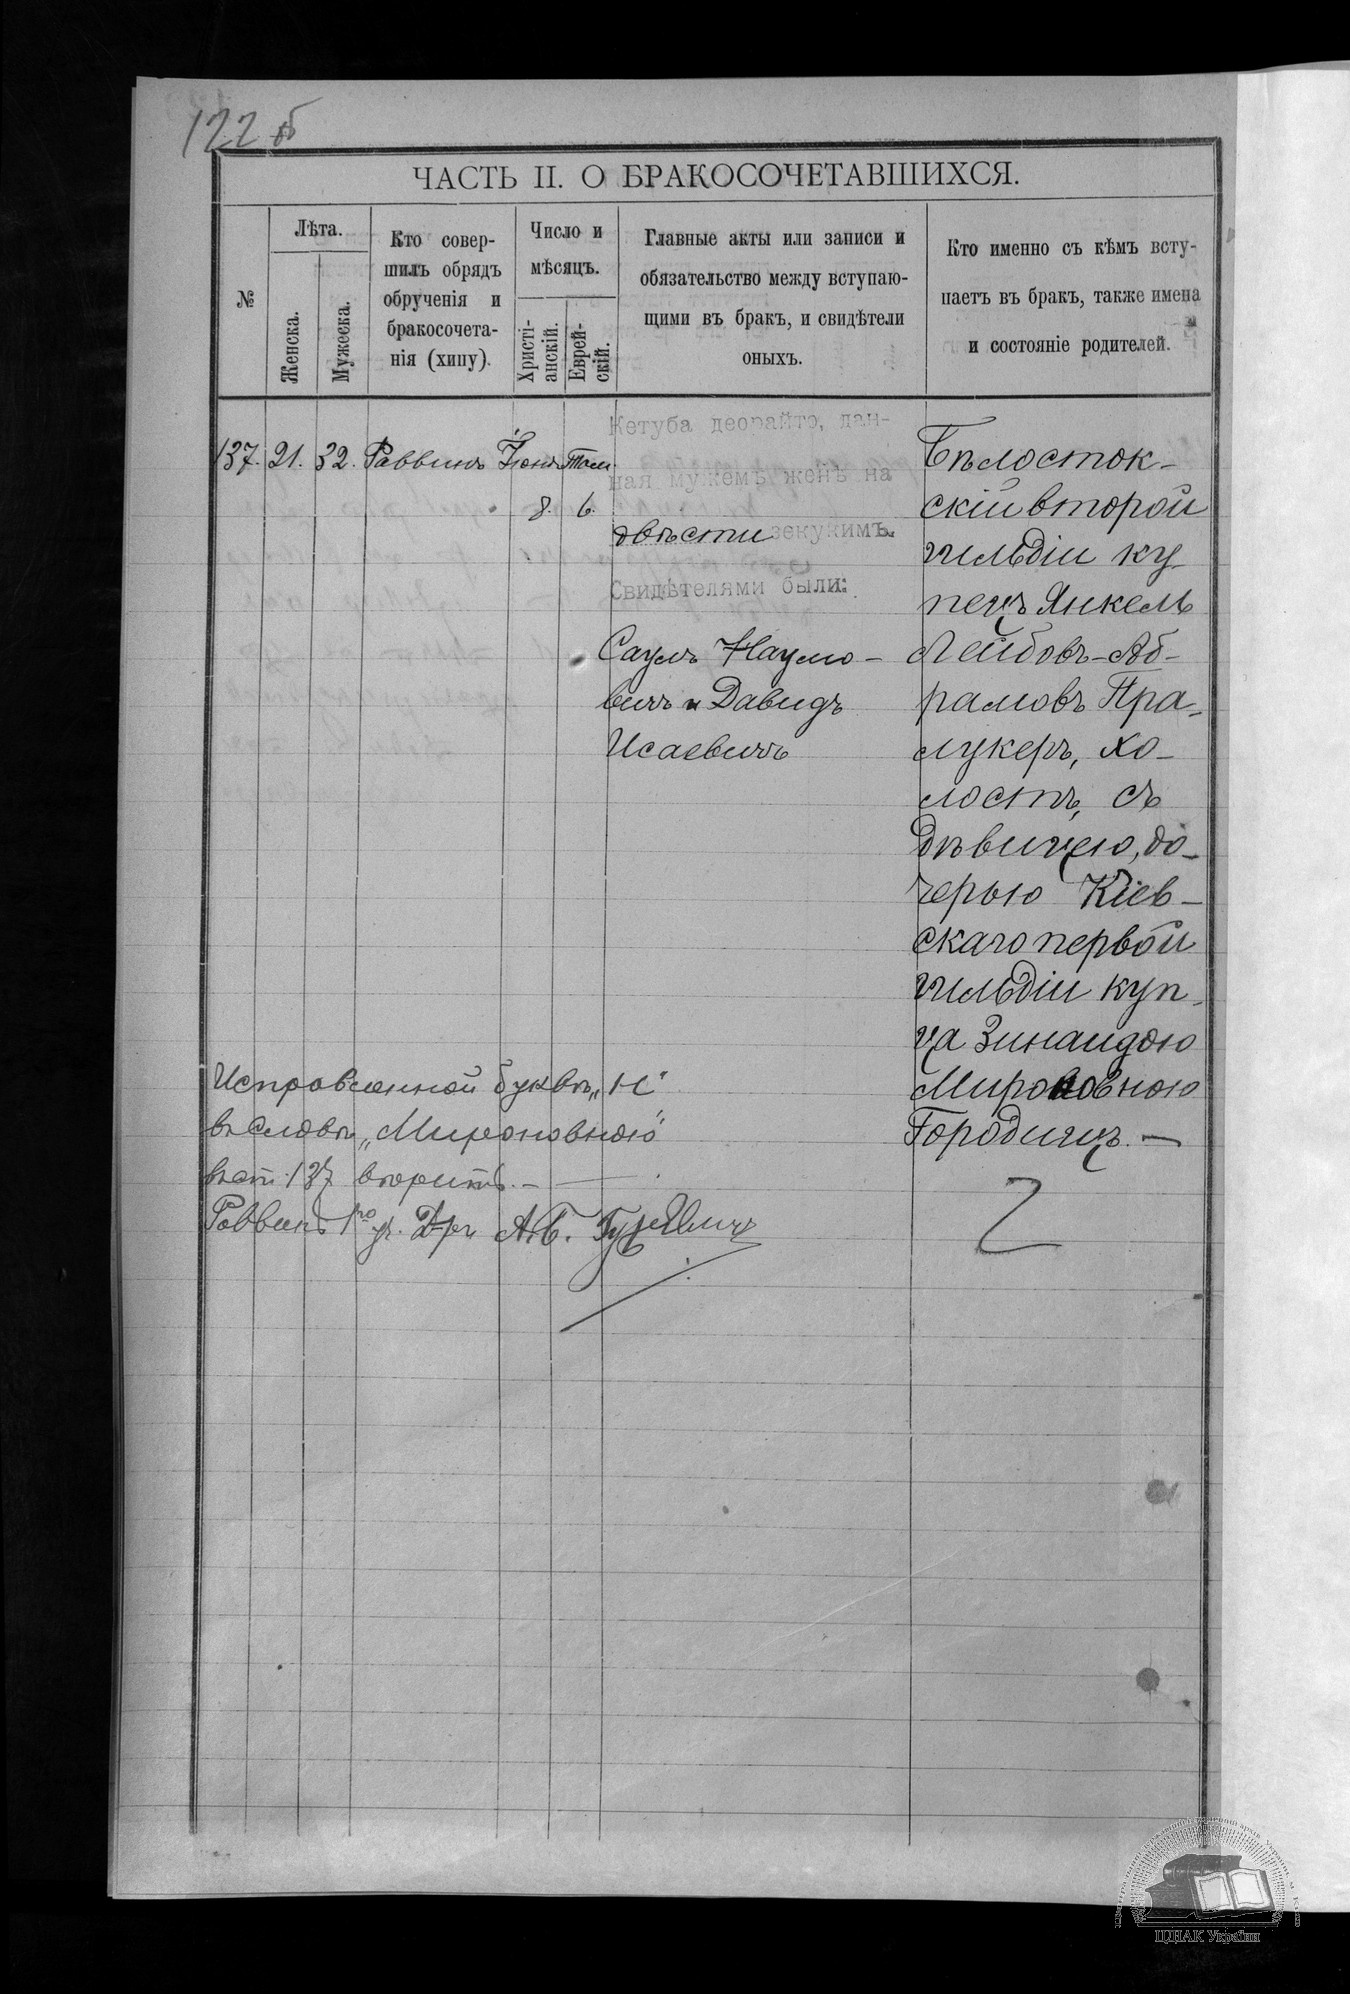 122 об
ЧАСТЬ II. О БРАКОСОЧЕТАВШИХСЯ.
№
Лѣта.
Женска.
Мужеска.
Кто совер-
шилъ обрядъ
обрученія и
бракосочета-
нія (хипу).
Число и
мѣсяцъ.
Христі-
анскій.
Еврей-
скій.
Главные акты или записи и
обязательство между вступаю-
щими въ бракъ, и свидѣтели
оныхъ.
Кто именно съ кѣмъ всту-
паетъ въ бракъ, также имена
и состояніе родителей.
137. 21. 32. Раввинъ Іюня Там.
8. 6.
Кетуба деорайто, дан-
ная мужемъ женѣ на
двѣсти зекукимъ.
Свидѣтелями были:
Саулъ Наумо-
вичъ и Давидъ
Исаевичъ
Бѣлосток-
скій второй
гильдіи ку-
пецъ Янкель
Лейбовъ-Аб-
рамовъ Пра-
лукеръ, хо-
лостъ, съ
дѣвицею, до-
черью Кіев-
скаго первой
гильдіи куп-
ца Зинаидою
Мироновною
Городищъ. —
Исправленной буквѣ „н"
въ словѣ „Мироновною"
въ ст. 137 вѣрить. —
Раввинъ А. Б. Гуревичъ
2
ЦДІАК України